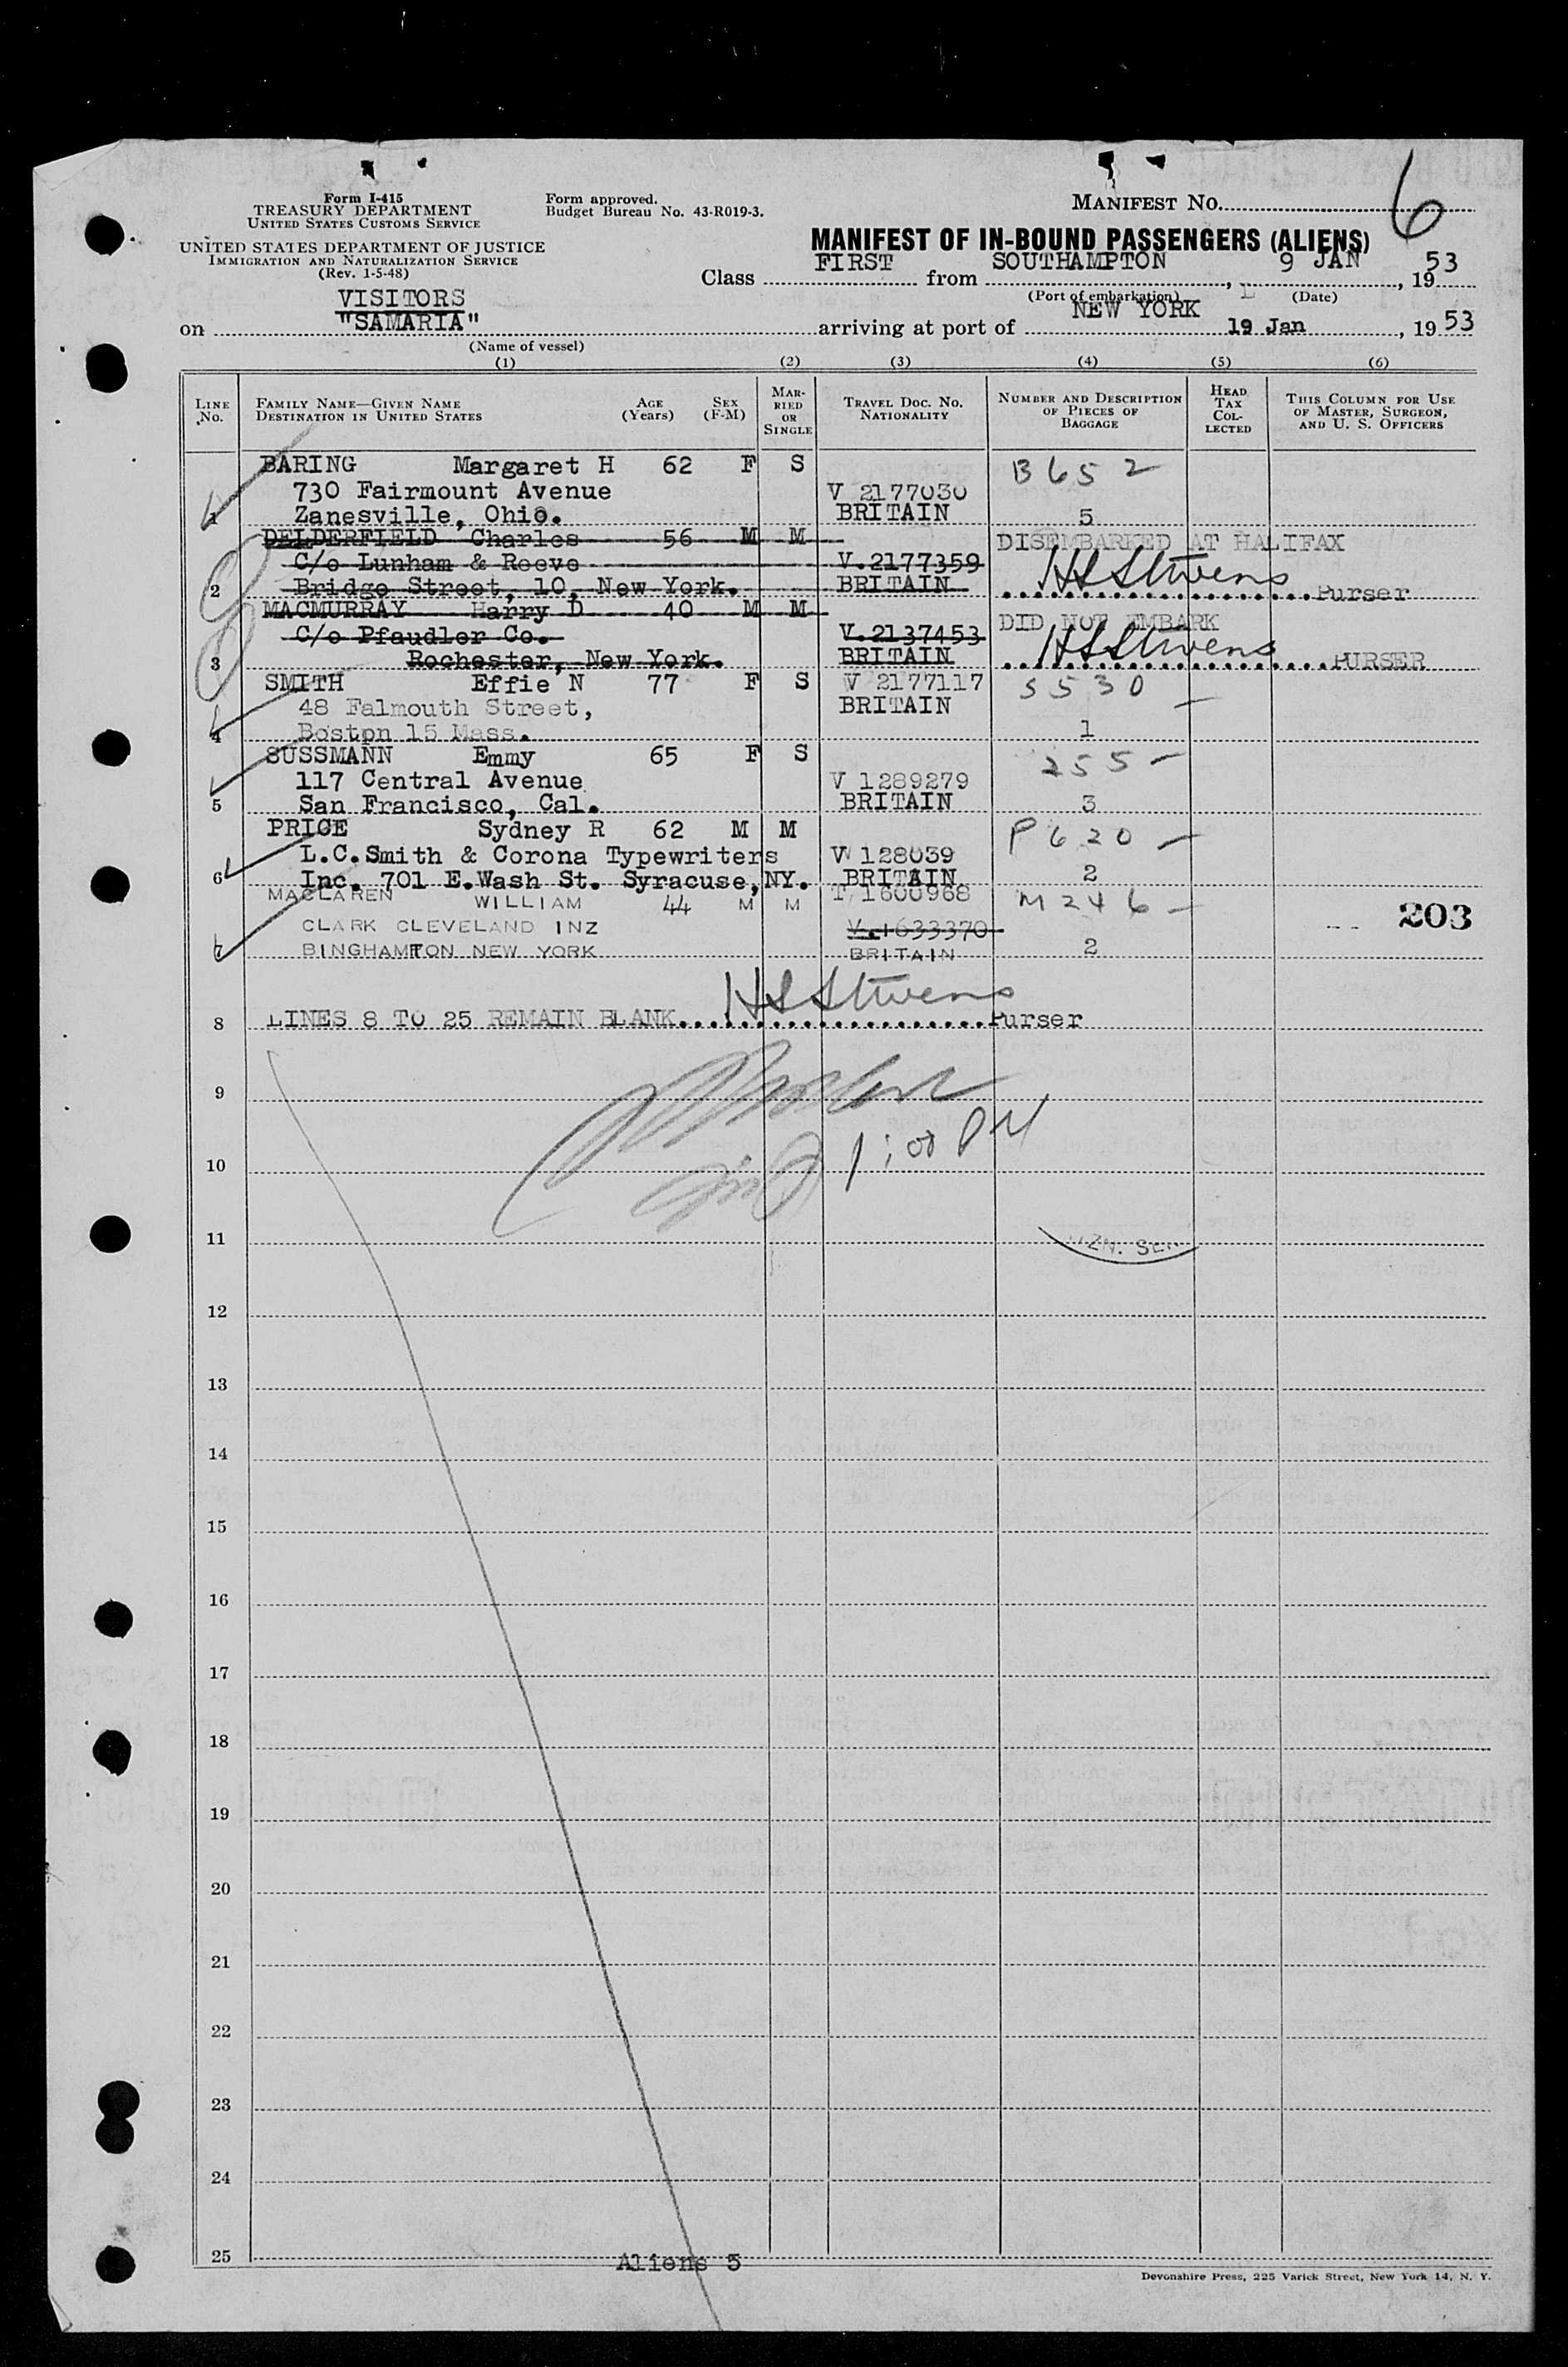 Form I-415
TREASURY DEPARTMENT
UNITED STATES CUSTOMS SERVICE
Form approved.
Budget Bureau No. 43-R019-3.
MANIFEST NO. 6
UNITED STATES DEPARTMENT OF JUSTICE
IMMIGRATION AND NATURALIZATION SERVICE
(Rev. 1-5-48)
MANIFEST OF IN-BOUND PASSENGERS (ALIENS)
Class FIRST from SOUTHAMPTON, 9 JAN, 19 53
(Port of embarkation) (Date)
VISITORS
on "SAMARIA" arriving at port of NEW YORK 19 Jan, 19 53
(Name of vessel)
(1) (2) (3) (4) (5) (6)
LINE NO.
FAMILY NAME—GIVEN NAME
DESTINATION IN UNITED STATES
AGE (Years)
SEX (F-M)
MARRIED OR SINGLE
TRAVEL DOC. NO. NATIONALITY
NUMBER AND DESCRIPTION OF PIECES OF BAGGAGE
HEAD TAX COLLECTED
THIS COLUMN FOR USE OF MASTER, SURGEON, AND U. S. OFFICERS
BARING Margaret H 62 F S B652
730 Fairmount Avenue V 2177030
1 Zanesville, Ohio. BRITAIN 5
DELDERFIELD Charles 56 M M DISEMBARKED AT HALIFAX
C/o Lunham & Reeve V.2177359 HS Stivens
2 Bridge Street, 10, New York. BRITAIN Purser
MACMURRAY Harry D 40 M M DID NOT EMBARK
C/o Pfaudler Co. V.2137453 HS Stivens
3 Rochester, New York. BRITAIN PURSER
SMITH Effie N 77 F S V 2177117 S530
48 Falmouth Street, BRITAIN
4 Boston 15 Mass. 1
SUSSMANN Emmy 65 F S 255 -
117 Central Avenue V 1289279
5 San Francisco, Cal. BRITAIN 3
PRICE Sydney R 62 M M P620 -
L.C.Smith & Corona Typewriters V 128039
6 Inc. 701 E.Wash St. Syracuse,NY. BRITAIN 2
MACLAREN WILLIAM 44 M M T 1600968 M246 - 203
CLARK CLEVELAND INZ V.1633370
7 BINGHAMTON NEW YORK BRITAIN 2
HS Stivens
8 LINES 8 TO 25 REMAIN BLANK Purser
9
1:00 PM
10
11
12
13
14
15
16
17
18
19
20
21
22
23
24
25 Aliens 5
Devonshire Press, 225 Varick Street, New York 14, N. Y.